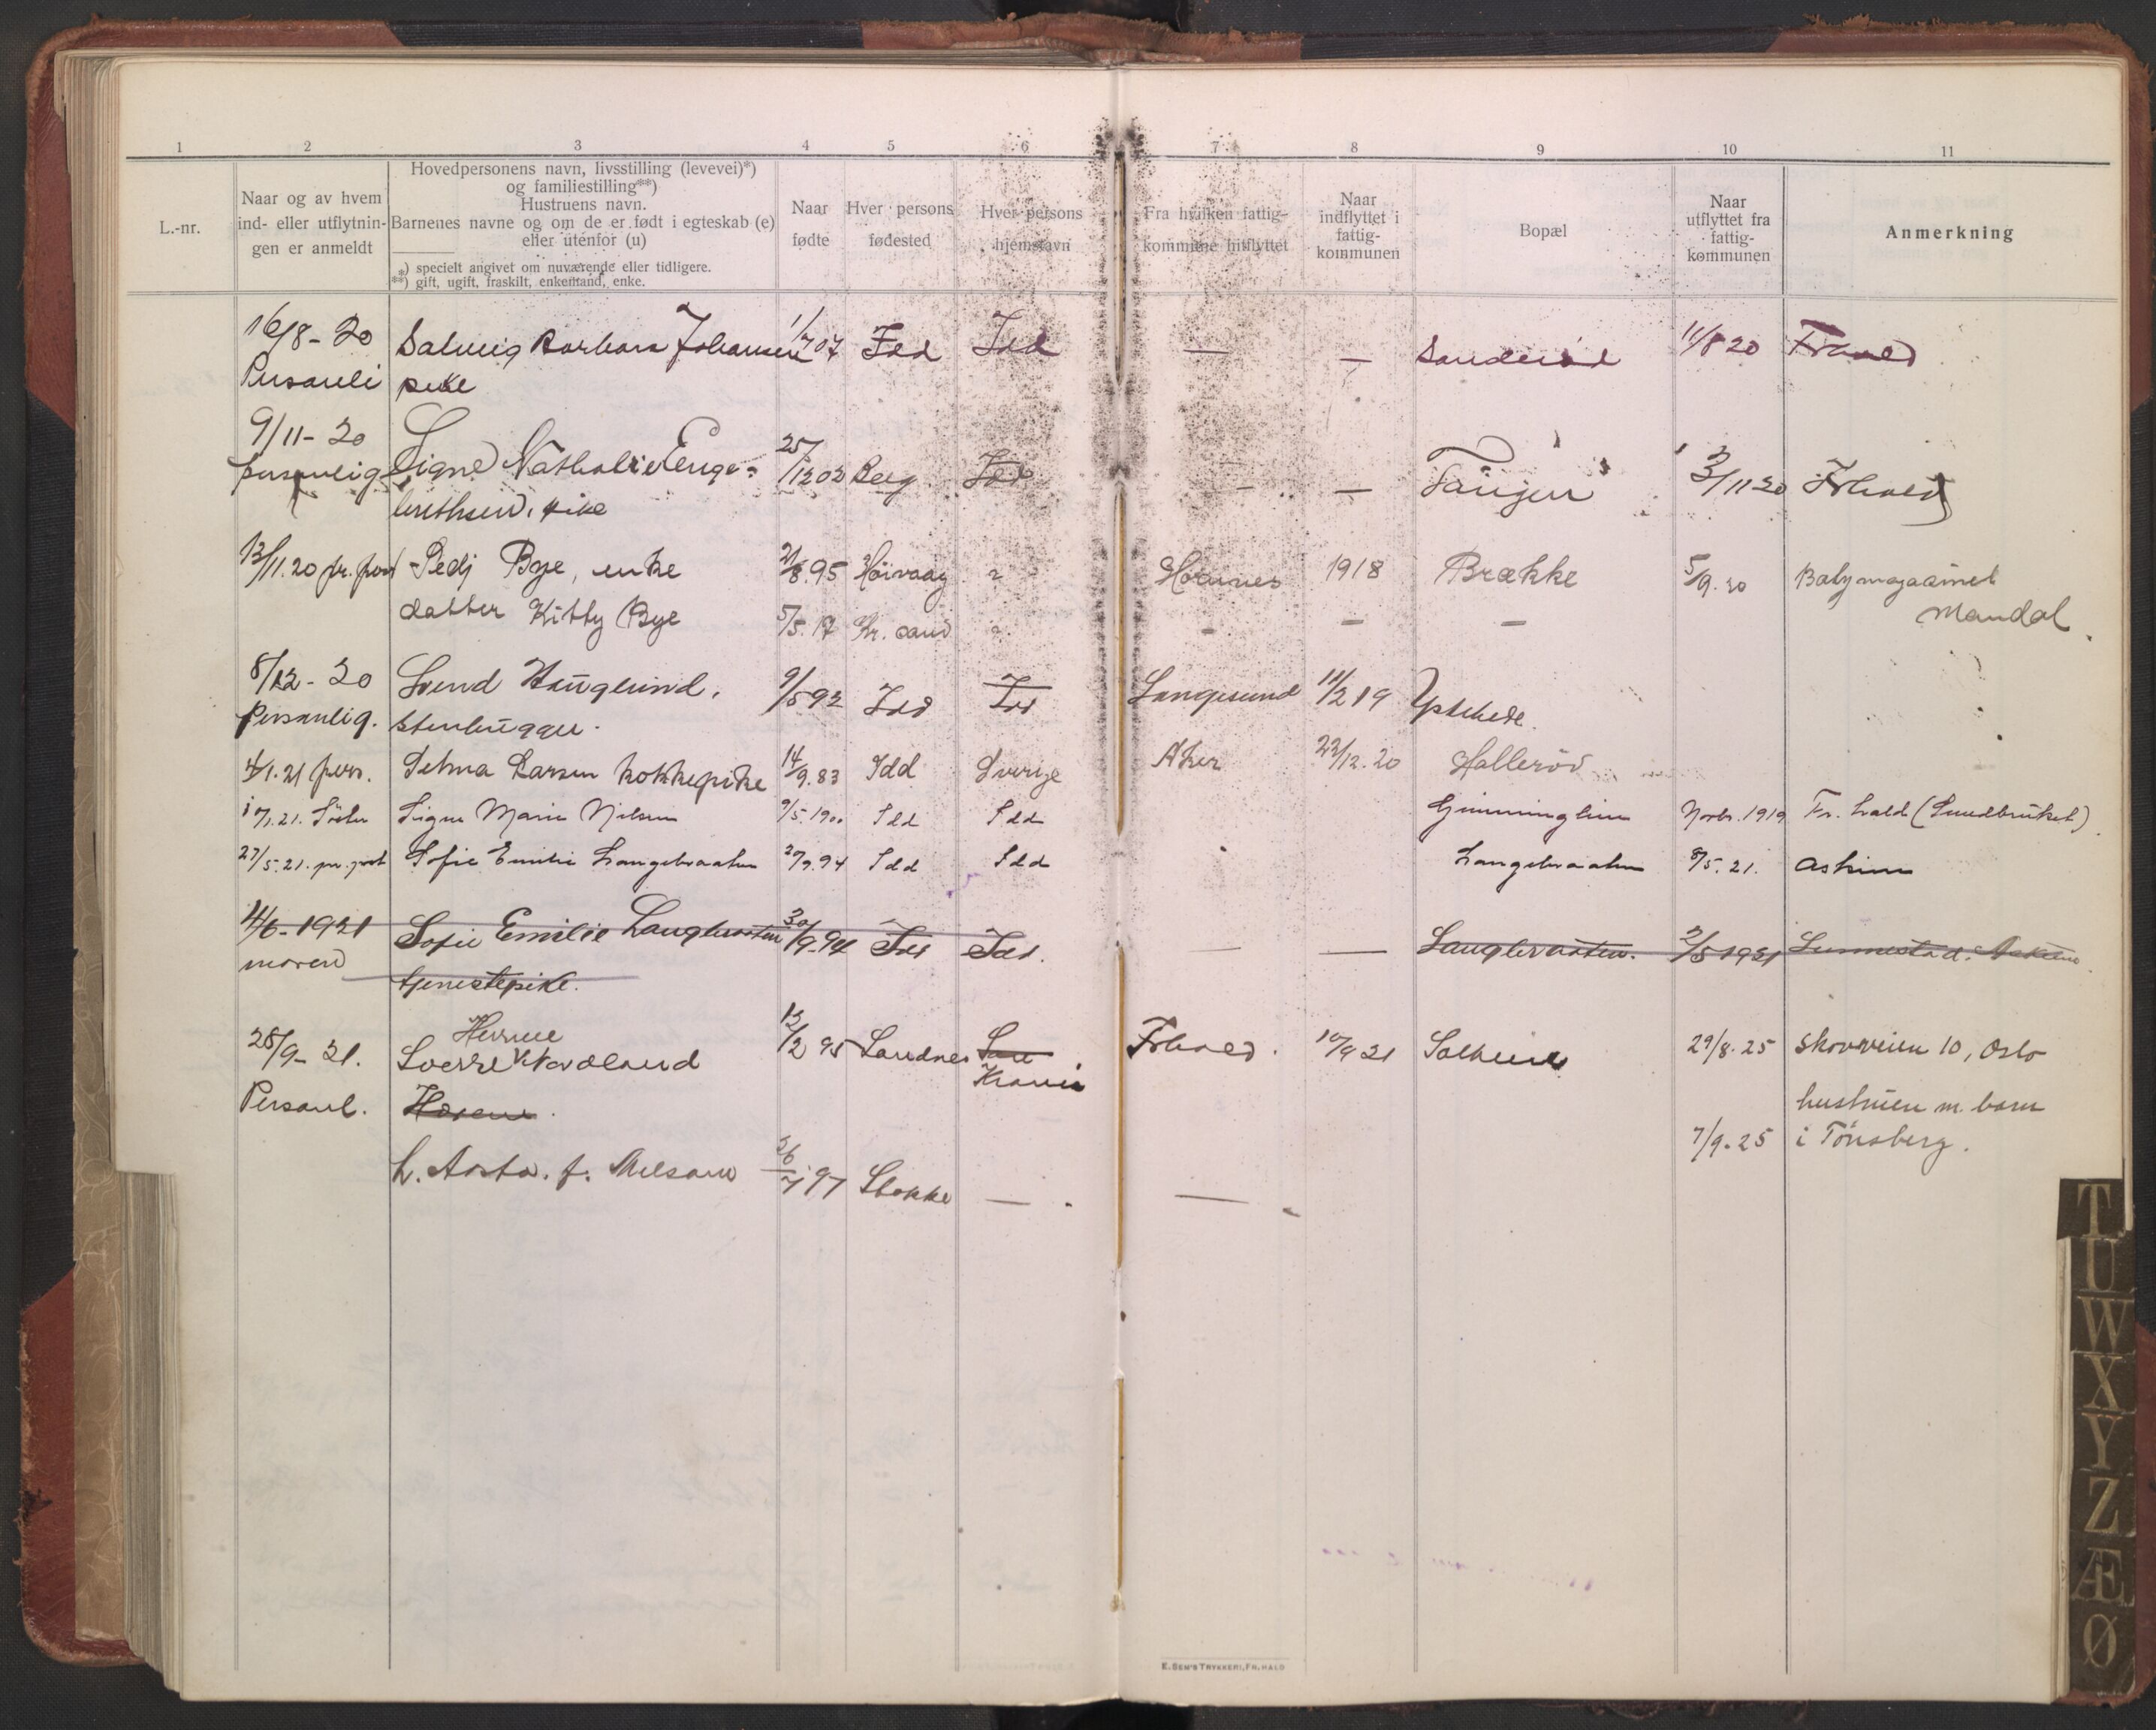 1 2 3 4 5 6 7 8 9 10 11
L.-nr.
Naar og av hvem
ind- eller utflytnin-
gen er anmeldt
Hovedpersonens navn, livsstilling (levevei)*)
og familiestilling**)
Hustruens navn.
Barnenes navne og om de er født i egteskab (e)
eller utenfor (u)
*) specielt angivet om nuværende eller tidligere.
**) gift, ugift, fraskilt, enkemand, enke.
Naar
fødte
Hver persons
fødested
Hver persons
hjemstavn
Fra hvilken fattig-
kommune hitflyttet
Naar
indflyttet i
fattig-
kommunen
Bopæl
Naar
utflyttet fra
fattig-
kommunen
Anmerkning
16/8-20 Solveig Barbara Johansen 07 Idd Idd — — 11/8 20 Frhald
pike
9/11-20
personlig Signe Nathalie Enge- 25/12 02 Berg Idd — — Tangen 3/11 20 Frhald
brethsen, pike
13/11.20 pr. post Pedj Bye, enke 21/8.95 Höivaag ? Hornnes 1918 Brække 5/9.20 Babymagasinet
Mandal.
datter Kitty Bye 5/5.17 Kr.sand ? - — —
8/12-20 Svend Hauglund. 9/5 92 Idd Idd Langesund 11/2 19
Personlig. stenhugger.
4/1.21 pers. Selma Larsen kokkepike 14/9.83 Idd Sverige Aker 22/12.20 Halleröd
17/1.21. Söster Signe Marie Nilsen 9/5.1900 Idd Idd Novbr. 1919 Fr.hald (Sundbruket)
27/5.21. pr. post Sofie Emilie Langebraaten 9.94 Idd Idd Langebraaten 8/5.21. Askim
4/6-1921 Sofie Emilie Langbraaten 30/9-94 Idd Idd. — — Langbraaten. 2/5 1921 Askim.
moren tjenestepike.
28/9-21. Sverre Nordland 12/2 95 Sandnes Frhald. 10/9 21 Solheim 29/8.25 Skovveien 10, Oslo
Personl.
hustruen m. barn
7/9.25 i Tönsberg.
h. Aasta. f. 26/7 97 Stokke — —
E. SEM'S TRYKKERI, FR.HALD
T
U
W
X
Y
Z
Æ
Ø